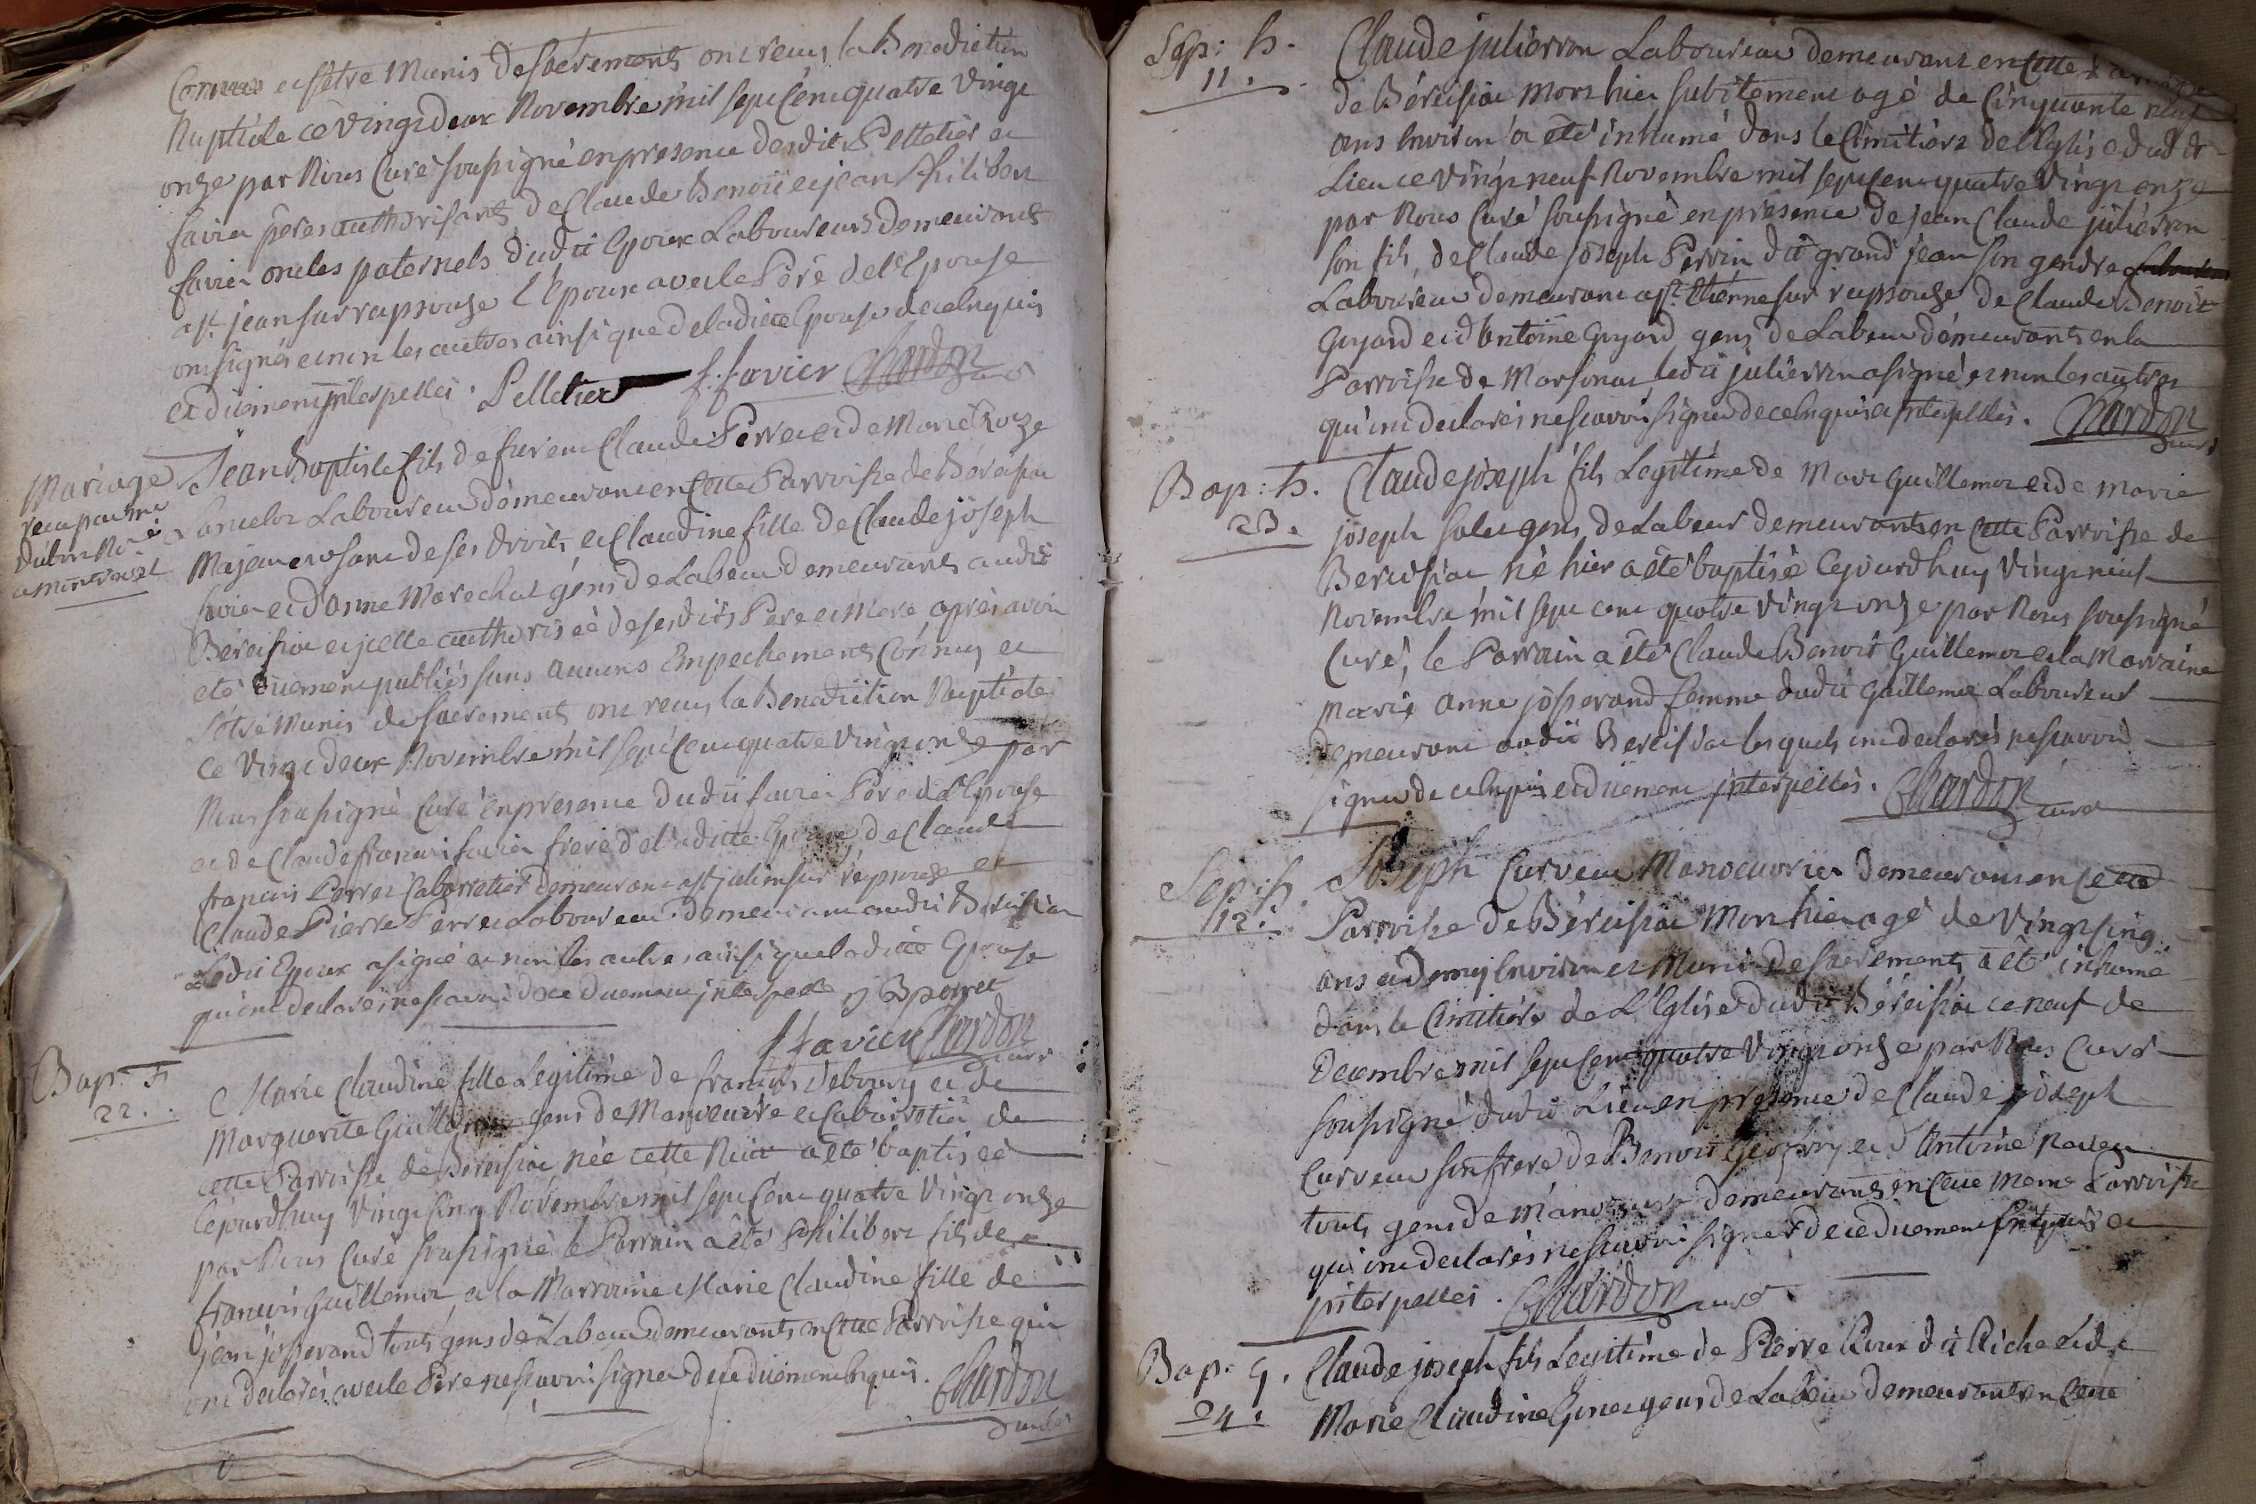 Connus et s'etre Munis des sacrements ont reçus la Benediction
Nuptiale ce vingt deux Novembre mil sept Cent quatre vingt
onze par Nous Curé soussigné en presence desdit Pelletier et
favier peres authorisants de Claude Benoît et jean Philibert
favier oncles paternels dudit Epoux Laboureurs demeurants
a st. jean sur reyssouze l'Epoux avec le Père de l'Epouse
ont signés et non les autres ainsi que de ladite Epouse de ce enquis
et duement interpellés. Pelletier f. favier Chardon
curé
Mariage
reçu par me
dubon No.re
a montrevel
Jean Baptiste fils de feu Claude Perret et de Marie Roze
Laboureur demeurant en Cette Parroisse de Béreisia
Majeur et usant de ses droits et Claudine fille de Claude jôseph
favier et d'Anne Marechal géns de Labeur demeurants audit
Béreisia et icelle authorisée de sesdits Pere et Mere, après avoir
eté duement publiés sans aucuns Empechements Connus et
s'être Munis des sacrements ont reçus la Benediction Nuptiale
Ce vingt deux Novembre mil sept Cent quatre vingt onze par
Nous soussigné Curé en presence dudit favier Père de l'Epouse
et de Claude françois favier frere de ladite Epouse, de Claude
françois Perret Cabarretier demeurant a st julien sur reyssouze et
Claude Pierre Perret Laboureur demeurant audit Béreisia
Ledit Epoux a signé et non les autres ainsi que ladite Epouse
qui ont declarés ne scavoir de ce duement interpellés J B perret
f favier Chardon
curé
Bap: h
22.
Marie Claudine fille Legitime de françois debourg et de
Marguerite Guillemot gens de Manoeuvre et Cabarretier de
cette Parroisse de Béreisia née cette Nuit a été baptisée
Cejourdhuy vingt Cinq Novembre mil sept Cent quatre vingt onze
par Nous Curé soussigné le Parrain a été Philibert fils de
françois Guillemot et la Marraine Marie Claudine fille de
jean josserand touts gens de Labeur demeurants en Cette Parroisse qui
ont declarés avec le Père ne scavoir signer de ce duement enquis.
Chardon
curé
Sep: h.
11.
Claude julierron Laboureur demeurant en Cette Parroisse
de Béreisia Mort hier subitement agé de Cinquante neuf
ans environ a été inhumé dans le Cimitiere de l'Eglise dudit
Lieu ce vingt neuf Novembre mil sept Cent quatre vingt onze
par Nous Curé soussigné en presence de jean Claude julierron
son fils, de Claude jôseph Perrin dit grand jean son gendre
Laboureur demeurant a st. Etienne sur reyssouze de Claude Benoit
Guyard et d'Antoine Guyard gens de Labeur demeurants en la
Parroisse de Marsonas ledit julierron a signé et non les autres
qui ont declarés ne scavoir signer de ce enquis et interpellés. Chardon
curé
Bap: h.
23.
Claude jôseph fils Legitime de Marc Guillemot et de Marie
jôseph Salet gens de Labeur demeurants en Cette Parroisse de
Bereisia né hier a été baptisé Cejourdhuy vingt neuf
Novembre mil sept cent quatre vingt onze par Nous soussigné
Curé, le Parrain a été Claude Benoit Guillemot et la Marraine
Marie Anne josserand femme dudit Guillemot Laboureur
demeurant audit Bereisia lesquels ont declarés ne scavoir
signer de ce enquis et duement interpellés. Chardon
curé
Sep: h.
12.
Joseph Curveur Manoeuvrier demeurant en Cette
Parroisse de Béreisia Mort hier agé de Vingt Cinq
ans et demy Environ et Muni des sacrements a été inhumé
dans le Cimitiére de L'Eglise dudit Béreisia ce neuf de
Decembre mil sept Cent quatre vingt onze par Nous Curé
soussigné dudit Lieu en presence de Claude jôseph
Curveur son frere de Benoit et d'Antoine
touts gens de Manoeuvre demeurants en Cette meme Parroisse
qui ont declarés ne scavoir signer de ce duement enquis et
interpellés. Chardon curé
Bap: g.
24.
Claude joseph fils Legitime de Pierre Roux dit Riche et de
Marie Claudine gens de Labeur demeurants en Cette